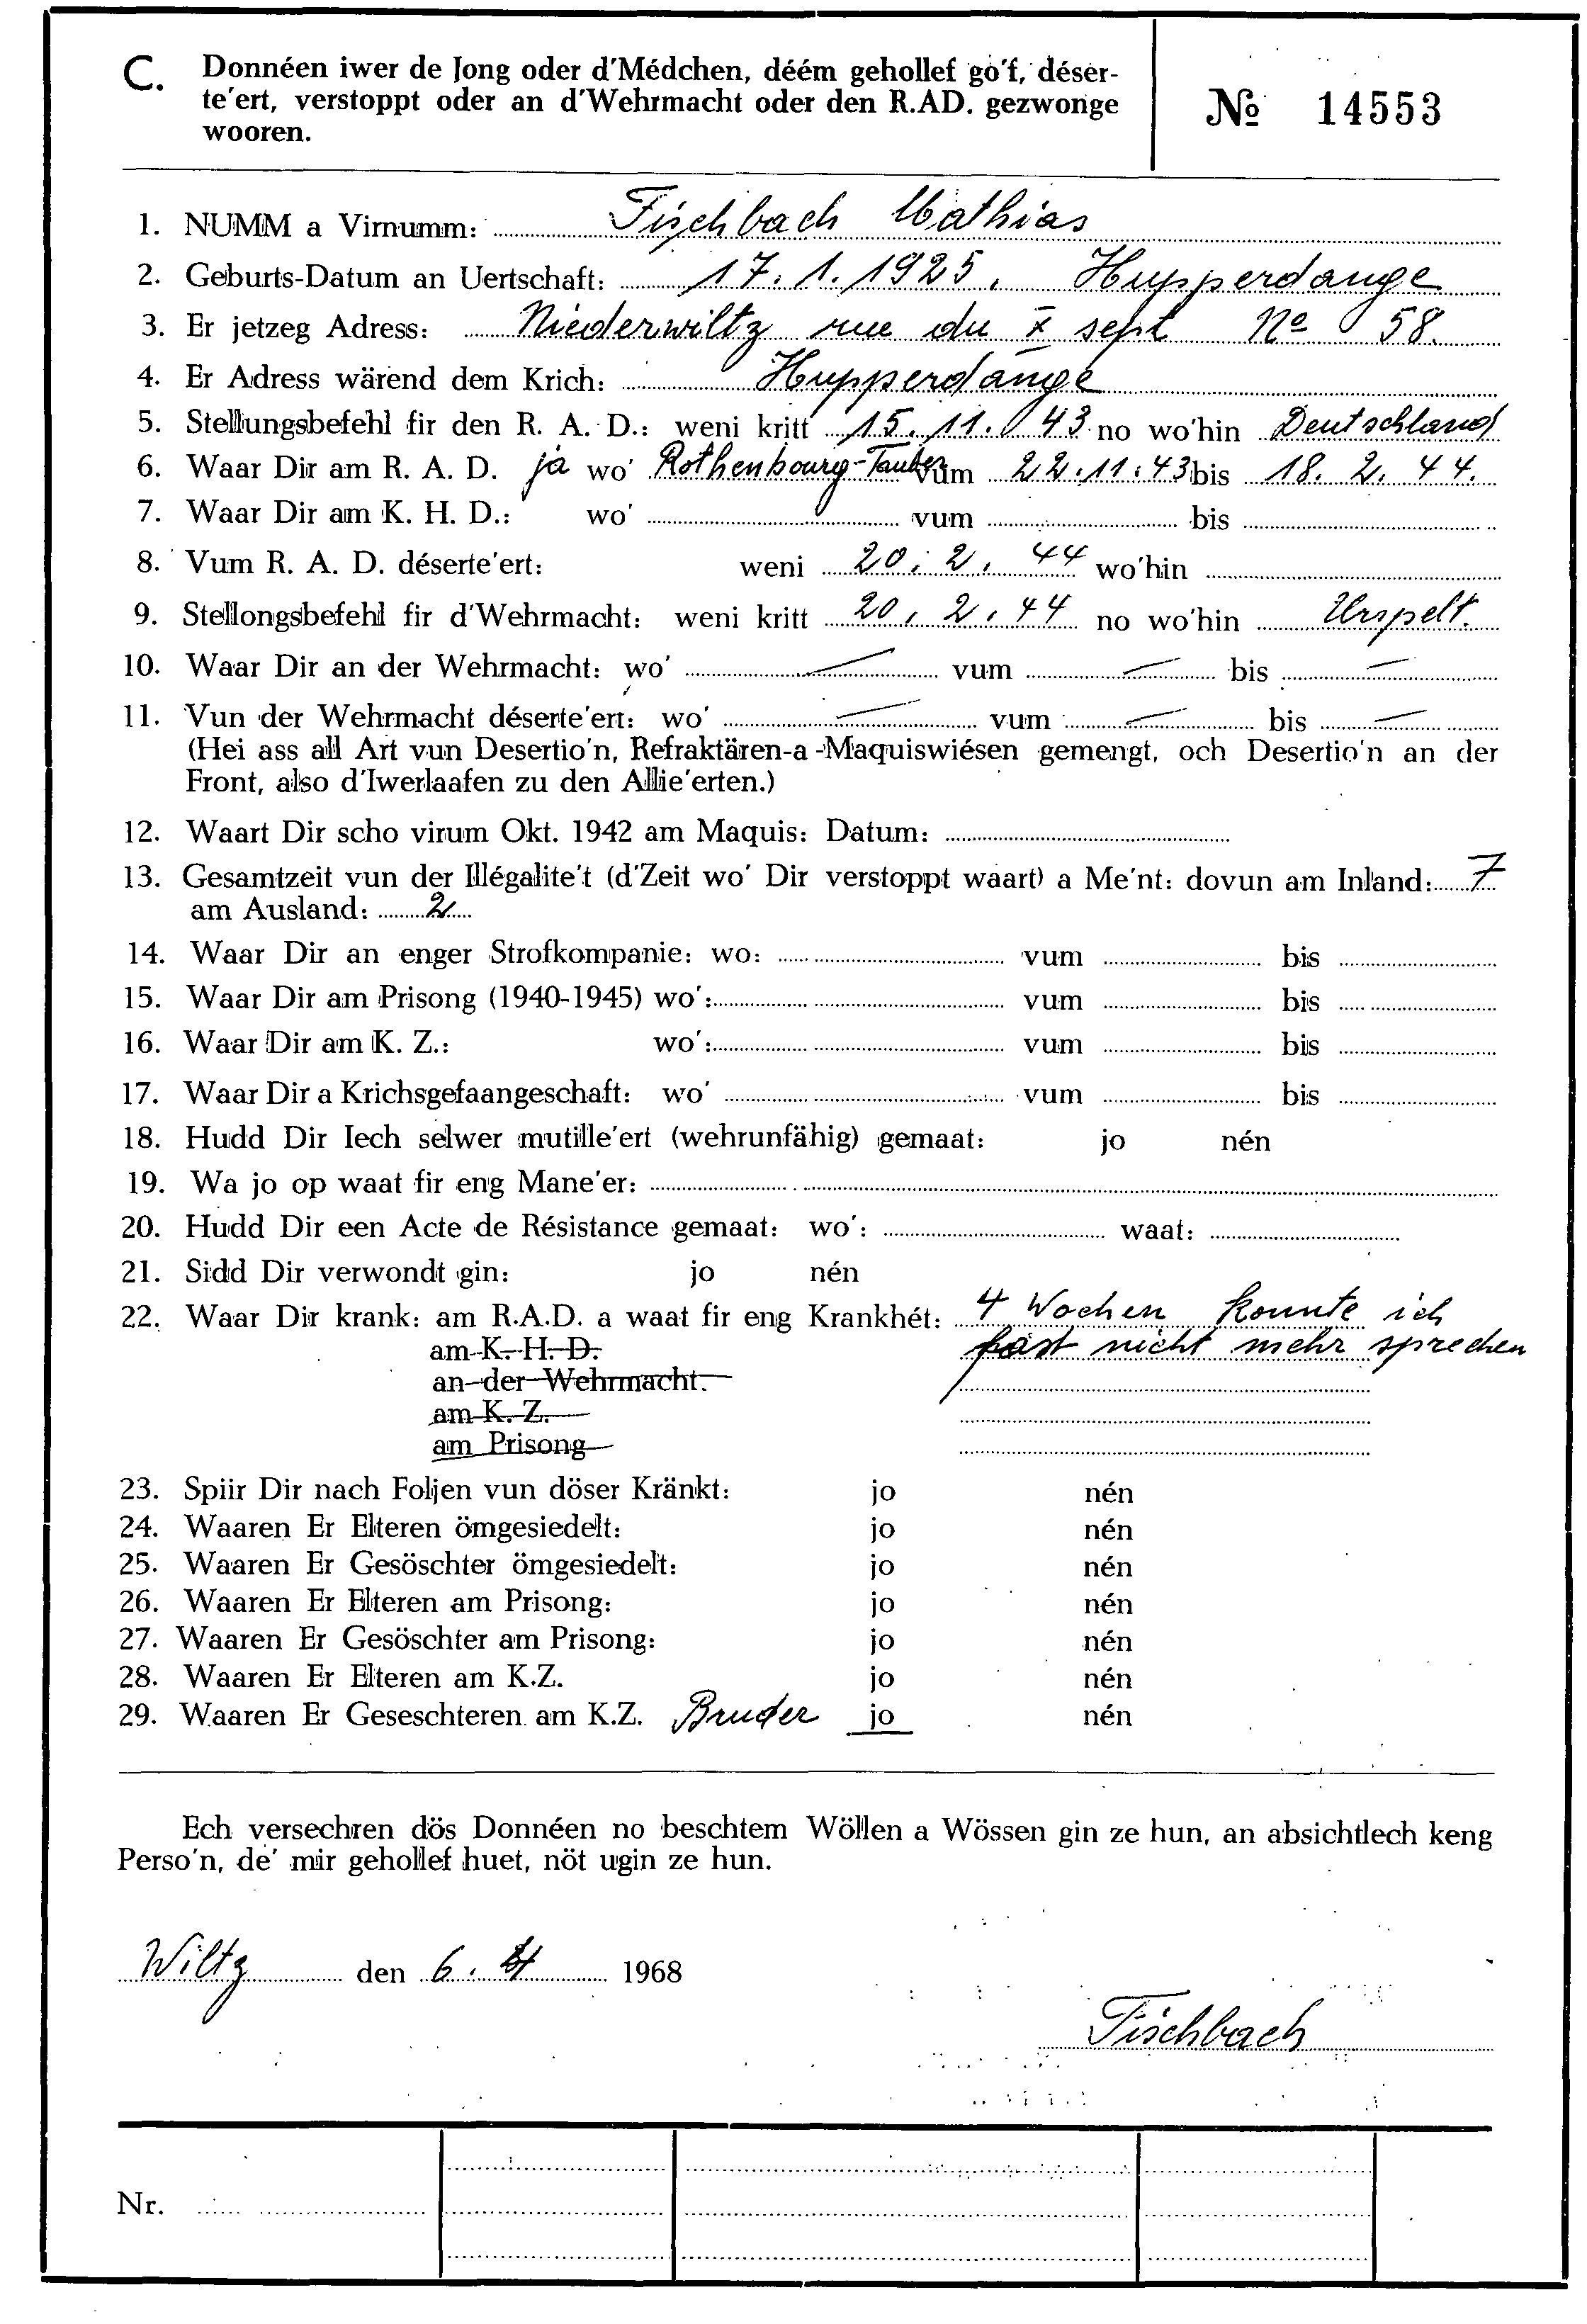 C. Donnéen iwer de Jong oder d'Médchen, déém gehollef go'f, déser-
te'ert, verstoppt oder an d'Wehrmacht oder den R.AD. gezwonge
wooren.
№ 14553
1. NUMM a Virnumm: Fischbach Mathias
2. Geburts-Datum an Uertschaft: 17. 1. 1925. Hupperdange
3. Er jetzeg Adress: Niederwiltz rue du X sept No 58.
4. Er Adress wärend dem Krich: Hupperdange
5. Stellungsbefehl fir den R. A. D.: weni kritt 15. 11. 43 no wo'hin Deutschland
6. Waar Dir am R. A. D. ja wo' Rothenbourg-Tauber vum 22.11.43 bis 18. 2. 44.
7. Waar Dir am K. H. D.: wo' vum bis
8. Vum R. A. D. déserte'ert: weni 20. 2. 44 wo'hin
9. Stellongsbefehl fir d'Wehrmacht: weni kritt 20. 2. 44 no wo'hin Urspelt.
10. Waar Dir an der Wehrmacht: wo' — vum — bis —
11. Vun der Wehrmacht déserte'ert: wo' — vum — bis —
(Hei ass all Art vun Desertio'n, Refraktären-a-Maquiswiésen gemengt, och Desertio'n an der
Front, also d'Iwerlaafen zu den Allie'erten.)
12. Waart Dir scho virum Okt. 1942 am Maquis: Datum:
13. Gesamtzeit vun der Illégalite't (d'Zeit wo' Dir verstoppt waart) a Me'nt: dovun am Inland: 7
am Ausland: 2
14. Waar Dir an enger Strofkompanie: wo: vum bis
15. Waar Dir am Prisong (1940-1945) wo': vum bis
16. Waar Dir am K. Z.: wo': vum bis
17. Waar Dir a Krichsgefaangeschaft: wo' vum bis
18. Hudd Dir Iech selwer mutille'ert (wehrunfähig) gemaat: jo nén
19. Wa jo op waat fir eng Mane'er:
20. Hudd Dir een Acte de Résistance gemaat: wo': waat:
21. Sidd Dir verwondt gin: jo nén
22. Waar Dir krank: am R.A.D. a waat fir eng Krankhét: 4 Wochen konnte ich
am K. H. D. fast nicht mehr sprechen
an der Wehrmacht.
am K. Z.
am Prisong
23. Spiir Dir nach Foljen vun döser Kränkt: jo nén
24. Waaren Er Elteren ömgesiedelt: jo nén
25. Waaren Er Gesöschter ömgesiedelt: jo nén
26. Waaren Er Elteren am Prisong: jo nén
27. Waaren Er Gesöschter am Prisong: jo nén
28. Waaren Er Elteren am K.Z. jo nén
29. Waaren Er Geseschteren am K.Z. Bruder jo nén
Ech versechren dös Donnéen no beschtem Wöllen a Wössen gin ze hun, an absichtlech keng
Perso'n, de' mir gehollef huet, nöt ugin ze hun.
Wiltz den 6. 4 1968
Fischbach
Nr.